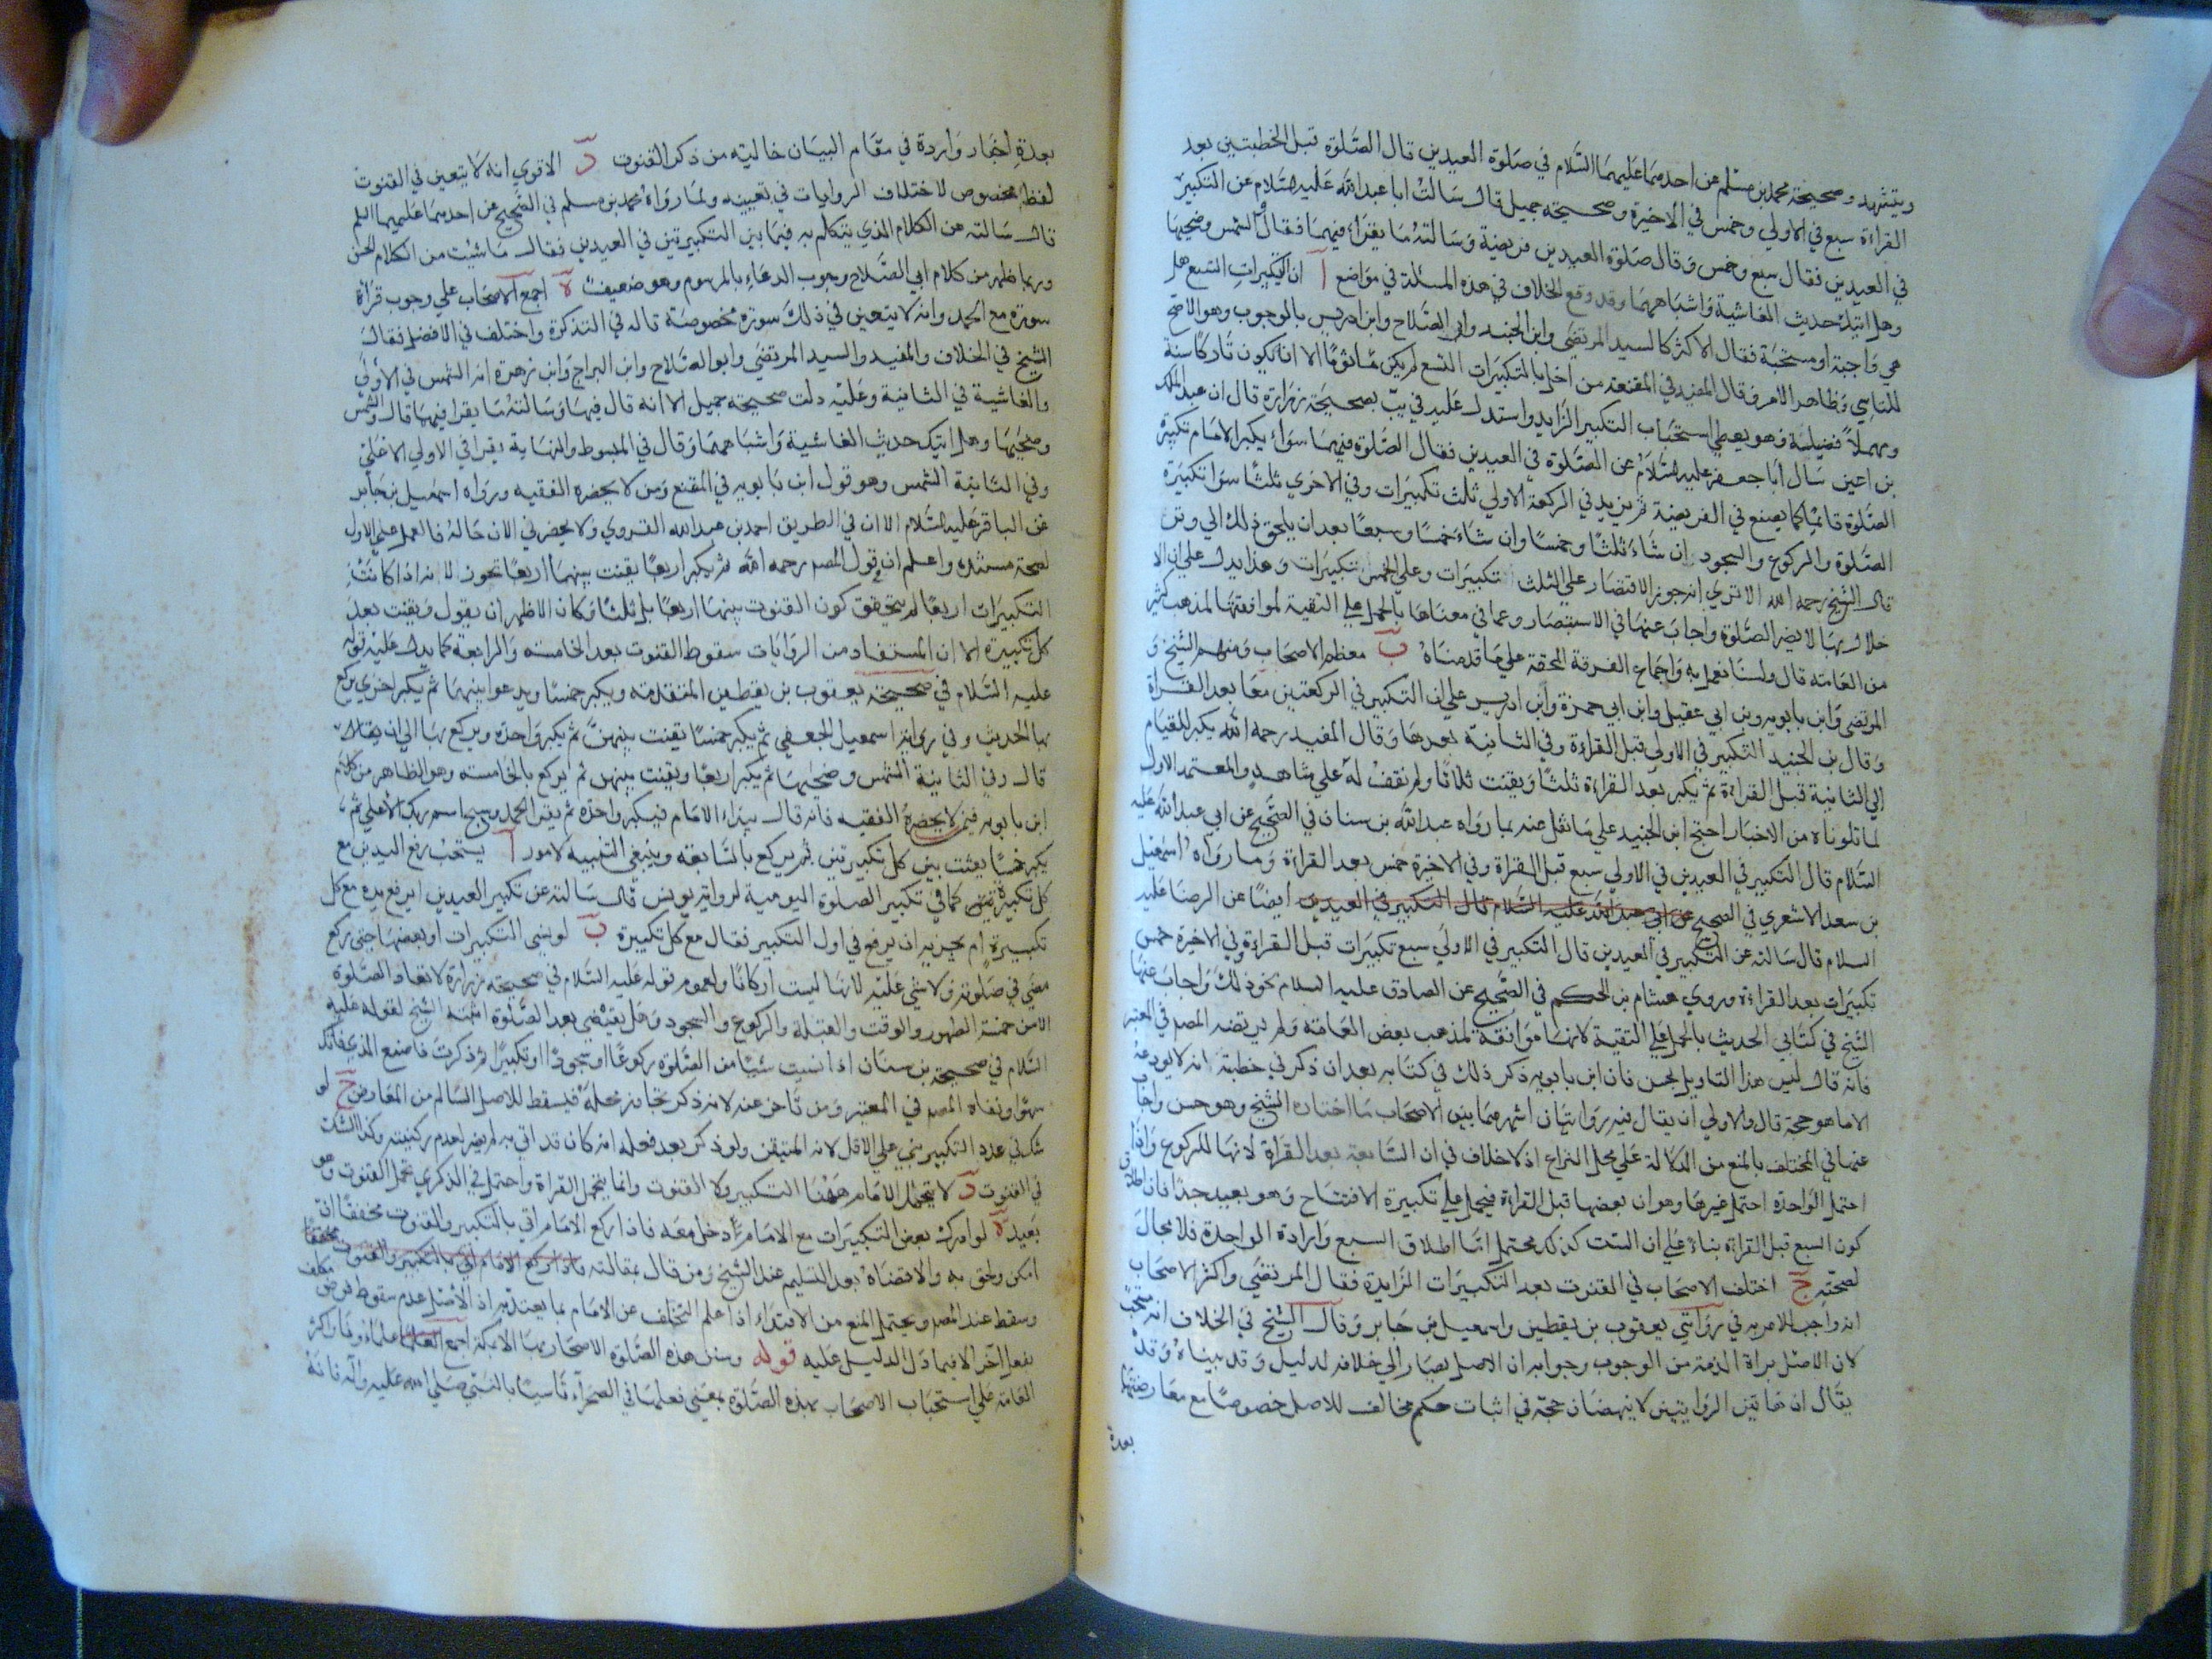 ويتشهد وصحيحة محمد بن مسلم عن احدهما عليهما السلام في صلوة العيدين قال الصلوة قبل الخطبتين بعد
القراءة سبع في الاولي وخمس في الاخيرة وصحيحة جميل قال سالت ابا عبد الله عليه السلام عن التكبير
في العيدين فقال سبع وخمس وقال صلوة العيدين فريضة وسالته ما يقراء فيهما فقال الشمس وضحيها
وهل اتيك حديث الغاشية واشباههما وقد وقع الخلاف في هذه المسئلة في مواضع آ ان التكبيرات التسع هل
هي واجبة او مستحبة فقال الاكثر كالسيد المرتضي وابن الجنيد وابي الصلاح وابن ادريس بالوجوب وهو الاصح
للتاسي وظاهر الامر وقال المفيد في المقنعة من اخل بالتكبيرات التسع لم يكن ماثوما الا انه يكون تاركا سنة
ومهملا فضيلة وهو يعطي استحباب التكبير الزايد واستدل عليه في يب بصحيحة زرارة قال ان عبد الملك
بن اعين سال ابا جعفر عليه السلام عن الصلوة في العيدين فقال الصلوة فيهما سواء يكبر الامام تكبيرة
الصلوة قائما كما يصنع في الفريضة ثم يزيد في الركعة الاولي ثلث تكبيرات وفي الاخري ثلثا سوا تكبيرة
الصلوة والركوع والسجود ان شاء ثلثا وخمسا وان شاء خمسا وسبعا بعد ان يلحق ذلك الي وتر
قال الشيخ رحمه الله الا تري انه جوز الاقتصار علي الثلث تكبيرات وعلي الخمس تكبيرات وهذا يدل علي ان الا
خلال بها لا يضر الصلوة واجاب عنها في الاستبصار وعما في معناها بالحمل علي التقية لموافقتها لمذهب كثير
من العامة قال ولسنا نعمل به واجماع الفرقة المحقة علي ما قدمناه ب معظم الاصحاب ومنهم الشيخ و
المرتضي وابن بابويه وبن ابي عقيل وابن ابي حمزة وابن ادريس علي ان التكبير في الركعتين معا بعد القراة
وقال بن الجنيد التكبير في الاولي قبل القراءة وفي الثانية بعدها وقال المفيد رحمه الله يكبر للقيام
الي الثانية قبل القراءة ثم يكبر بعد القراءة ثلثا ويقنت ثلاثا ولم نقف له علي شاهد والمعتمد الاول
لما تلوناه من الاخبار احتج ابن الجنيد علي ما نقل عنه بما رواه عبد الله بن سنان في الصحيح عن ابي عبد الله عليه
السلام قال التكبير في العيدين في الاولي سبع قبل القراة وفي الاخيرة خمس بعد القراءة وما رواه اسمعيل
بن سعد الاشعري في الصحيح عن ابي عبد الله عليه السلام قال التكبير في العيدين ايضا عن الرضا عليه
السلام قال سالته عن التكبير في العيدين قال التكبير في الاولي سبع تكبيرات قبل القراءة وفي الاخيرة خمس
تكبيرات بعد القراءة وروي هشام بن الحكم في الصحيح عن الصادق عليه السلام نحو ذلك واجاب عنها
الشيخ في كتابي الحديث بالحمل علي التقية لانها موافقة لمذهب بعض العامة ولم يرتضه المصد في المعتبر
فانه قال ليس هذا التاويل بحسن فان ابن بابويه ذكر ذلك في كتابه بعد ان ذكر في خطبته انه لا يودعه
الا ما هو حجة قال والاولي ان يقال فيه روايتان اشهرهما بين الاصحاب ما اختاره الشيخ وهو حسن واجاب
عنها في المختلف بالمنع من الدلالة علي محل النزاع اذ لا خلاف في ان السابعة بعد القراة لانها للركوع واذا
احتمل الواحدة احتمل غيرها وهو ان بعضها قبل القراءة فيحمل علي تكبيرة الافتتاح وهو بعيد جدا فان اطلاق
كون السبع قبل القراة بناء علي ان الست كذلك محتمل اما اطلاق السبع وارادة الواحدة فلا مجال
لصحته ج اختلف الاصحاب في القنوت بعد التكبيرات الزايدة فقال المرتضي واكثر الاصحاب
انه واجب للامر به في روايتي يعقوب بن يقطين واسمعيل بن جابر وقال الشيخ في الخلاف انه مستحب
لان الاصل براة الذمة من الوجوب وجوابه ان الاصل يصار الي خلافه لدليل وقد بيناه وقد
يقال ان هاتين الروايتين لا ينهضان حجة في اثبات حكم مخالف للاصل خصوصا مع معارضتها
بعدة
بعدة اخبار واردة في مقام البيان خالية من ذكر القنوت د الاقوي انه لا يتعين في القنوت
لفظ مخصوص لاختلاف الروايات في تعيينه ولما رواه محمد بن مسلم في الصحيح عن احدهما عليهما السلم
قال سالته عن الكلام الذي يتكلم به فيما بين التكبيرتين في العيدين فقال ما شئت من الكلام الحسن
وربما ظهر من كلام ابي الصلاح وجوب الدعاء بالمرسوم وهو ضعيف ه اجمع الاصحاب علي وجوب قراة
سورة مع الحمد وانه لا يتعين في ذلك سورة مخصوصة قاله في التذكرة واختلف في الافضل فقال
الشيخ في الخلاف والمفيد والسيد المرتضي وابو الصلاح وابن البراج وابن زهرة انه الشمس في الاولي
والغاشية في الثانية وعليه دلت صحيحة جميل الا انه قال فيها وسالته ما يقرا فيهما قال والشمس
وضحيها وهل اتيك حديث الغاشية واشباههما وقال في المبسوط والنهاية يقرا في الاولي الاعلي
وفي الثانية الشمس وهو قول ابن بابويه في المقنع ومن لا يحضره الفقيه ورواه اسمعيل بن جابر
عن الباقر عليه السلام الا ان في الطريق احمد بن عبد الله القروي ولا يحضرني الان حاله فالعمل علي الاول
لصحة مستنده واعلم ان قول المصد رحمه الله ثم يكبر اربعا يقنت بينها اربعا تجوز لانه اذا كانت
التكبيرات اربعا لم يتحقق كون القنوت بينها اربعا بل ثلثا وكان الاظهر ان يقول ويقنت بعد
كل تكبيرة الا ان المستفاد من الروايات سقوط القنوت بعد الخامسة والرابعة كما يدل عليه قوله
عليه السلام في صحيحة يعقوب بن يقطين المتقدمة ويكبر خمسا ويدعو بينها ثم يكبر اخري يركع
بها الحديث وفي رواية اسمعيل الجعفي ثم يكبر خمسا يقنت بينهن ثم يكبر واحدة ويركع بها الي ان
قال وفي الثانية الشمس وضحيها ثم يكبر اربعا ويقنت بينهن ثم يركع بالخامسة وهو الظاهر من كلام
ابن بابويه فيمن لا يحضره الفقيه فانه قال يبداء الامام فيكبر واحدة ثم يقرا الحمد وسبح اسم ربك الاعلي ثم
يكبر خمسا يقنت بين كل تكبيرتين ثم يركع بالسابعة وينبغي التنبيه لامور آ يستحب رفع اليدين مع
كل تكبيرة كما في تكبير الصلوة اليومية لرواية يونس قال سالته عن تكبير العيدين ايرفع يده مع كل
تكبيرة ام يجزيه ان يرفع في اول التكبير فقال مع كل تكبيرة ب لو نسي التكبيرات او بعضها حتي ركع
مضي في صلوته ولا شيء عليه لانها ليست اركانا ولعموم قوله عليه السلام في صحيحة زرارة لا تعاد الصلوة
الا من خمسة الطهور والوقت والقبلة والركوع والسجود وهل يقضي بعد الصلوة اثبته الشيخ لقوله عليه
السلام في صحيحة بن سنان اذا نسيت شيئا من الصلوة ركوعا او سجودا او تكبيرا ثم ذكرت فاصنع الذي فاتك
سهوا ونفاه المصد في المعتبر ومن تاخر عنه لانه ذكر تجاوز محله فيسقط للاصل السالم من المعارض ج لو
شك في عدد التكبير بني علي الاقل لانه المتيقن ولو ذكر بعد فعله انه كان قد اتي به لم يضر لعدم ركنيته وكذا الشك
في القنوت د لا يتحمل الامام ههنا التكبير ولا القنوت وانما يتحمل القراة واحتمل في الذكري تحمل القنوت وهو
بعيد ه لو ادرك بعض التكبيرات مع الامام دخل معه فاذا ركع الامام اتي بالتكبير والقنوت مخففا ان
امكن ولحق به والا قضاه بعد التسليم عند الشيخ ومن قال بمقالته فاذا ركع الامام اتي بالتكبير والقنوت مخففا
وسقط عند المصد ويحتمل المنع من الاقتداء اذا علم التخلف عن الامام بما يعتد به اذ الاصل عدم سقوط فرض مكلف
بفعل اخر الا فيما دل الدليل عليه قوله وسنن هذه الصلوة الاصحار بها الا بمكة اجمع العلما علماؤنا واكثر
العامة علي استحباب الاصحار بهذه الصلوة بمعني فعلها في الصحراء تاسيا بالنبي صلي الله عليه وآله فانه